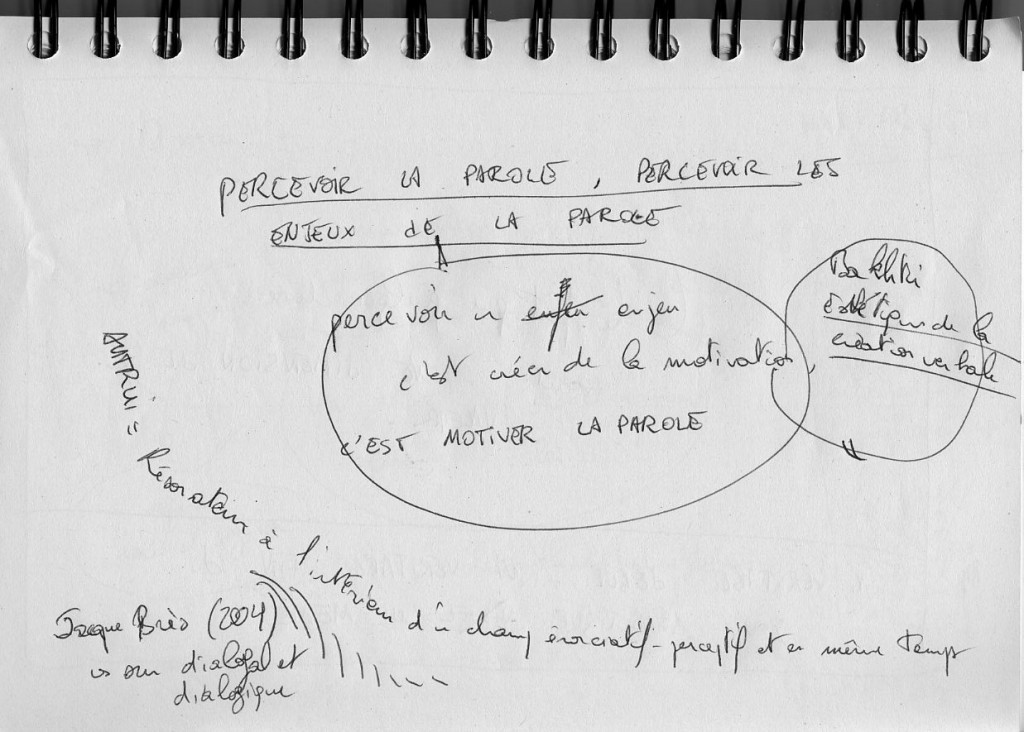 PERCEVOIR LA PAROLE, PERCEVOIR LES
ENJEUX dE LA PAROLE
percevoir un enjeu
c'est créer de la motivation,
c'EST MOTIVER LA PAROLE
Bakhti
esthétique de la
création verbale
AUTRUI = Résonateur à l'intérieur d'un champ énonciatif-perceptif et en même temps
Jacque Brès (2004)
sur dialogal et
dialogique